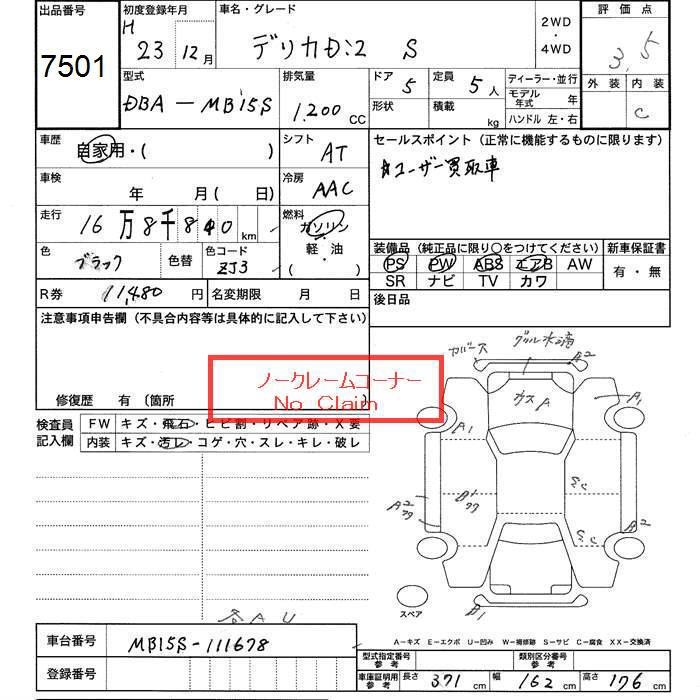 出品番号 初度登録年月 車名・グレード 2WD ・ 4WD 評価点
7501 H 23 12月 デリカD:2 S 3.5
型式 排気量 ドア 5 定員 5人 ディーラー・並行 外装 内装
DBA-MB15S 1,200 CC 形状 積載 kg モデル年式 年 C
ハンドル 左・右
車歴 自家用・( ) シフト AT セールスポイント (正常に機能するものに限ります)
車検 年 月( 日) 冷房 AAC ☆ユーザー買取車
走行 16万8千840km 燃料 ガソリン
軽・油
( )
色 ブラック 色替 色コード ZJ3
装備品 (純正品に限り〇をつけてください) 新車保証書
PS PW ABS エアB AW 有・無
SR ナビ TV カワ
R券 11,480円 名変期限 月 日 後日品
注意事項申告欄 (不具合内容等は具体的に記入して下さい)
ノークレームコーナー
No Claim
修復歴 有 〔箇所
検査員記入欄 FW キズ・飛石・ヒビ割・リペア跡・X要
内装 キズ・汚レ・コゲ・穴・スレ・キレ・破レ
カバース グリル水滴
A2
ガスA A1
A1
A2 B1
A2
B1
スペア
各AU
A-キズ E-エクボ U-凹み W-補修跡 S-サビ C-腐食 XX-交換済
車台番号 MB15S-111678
登録番号
型式指定番号 参考 類別区分番号 参考
車庫証明用 参考 長さ 371cm 幅 162cm 高さ 176cm